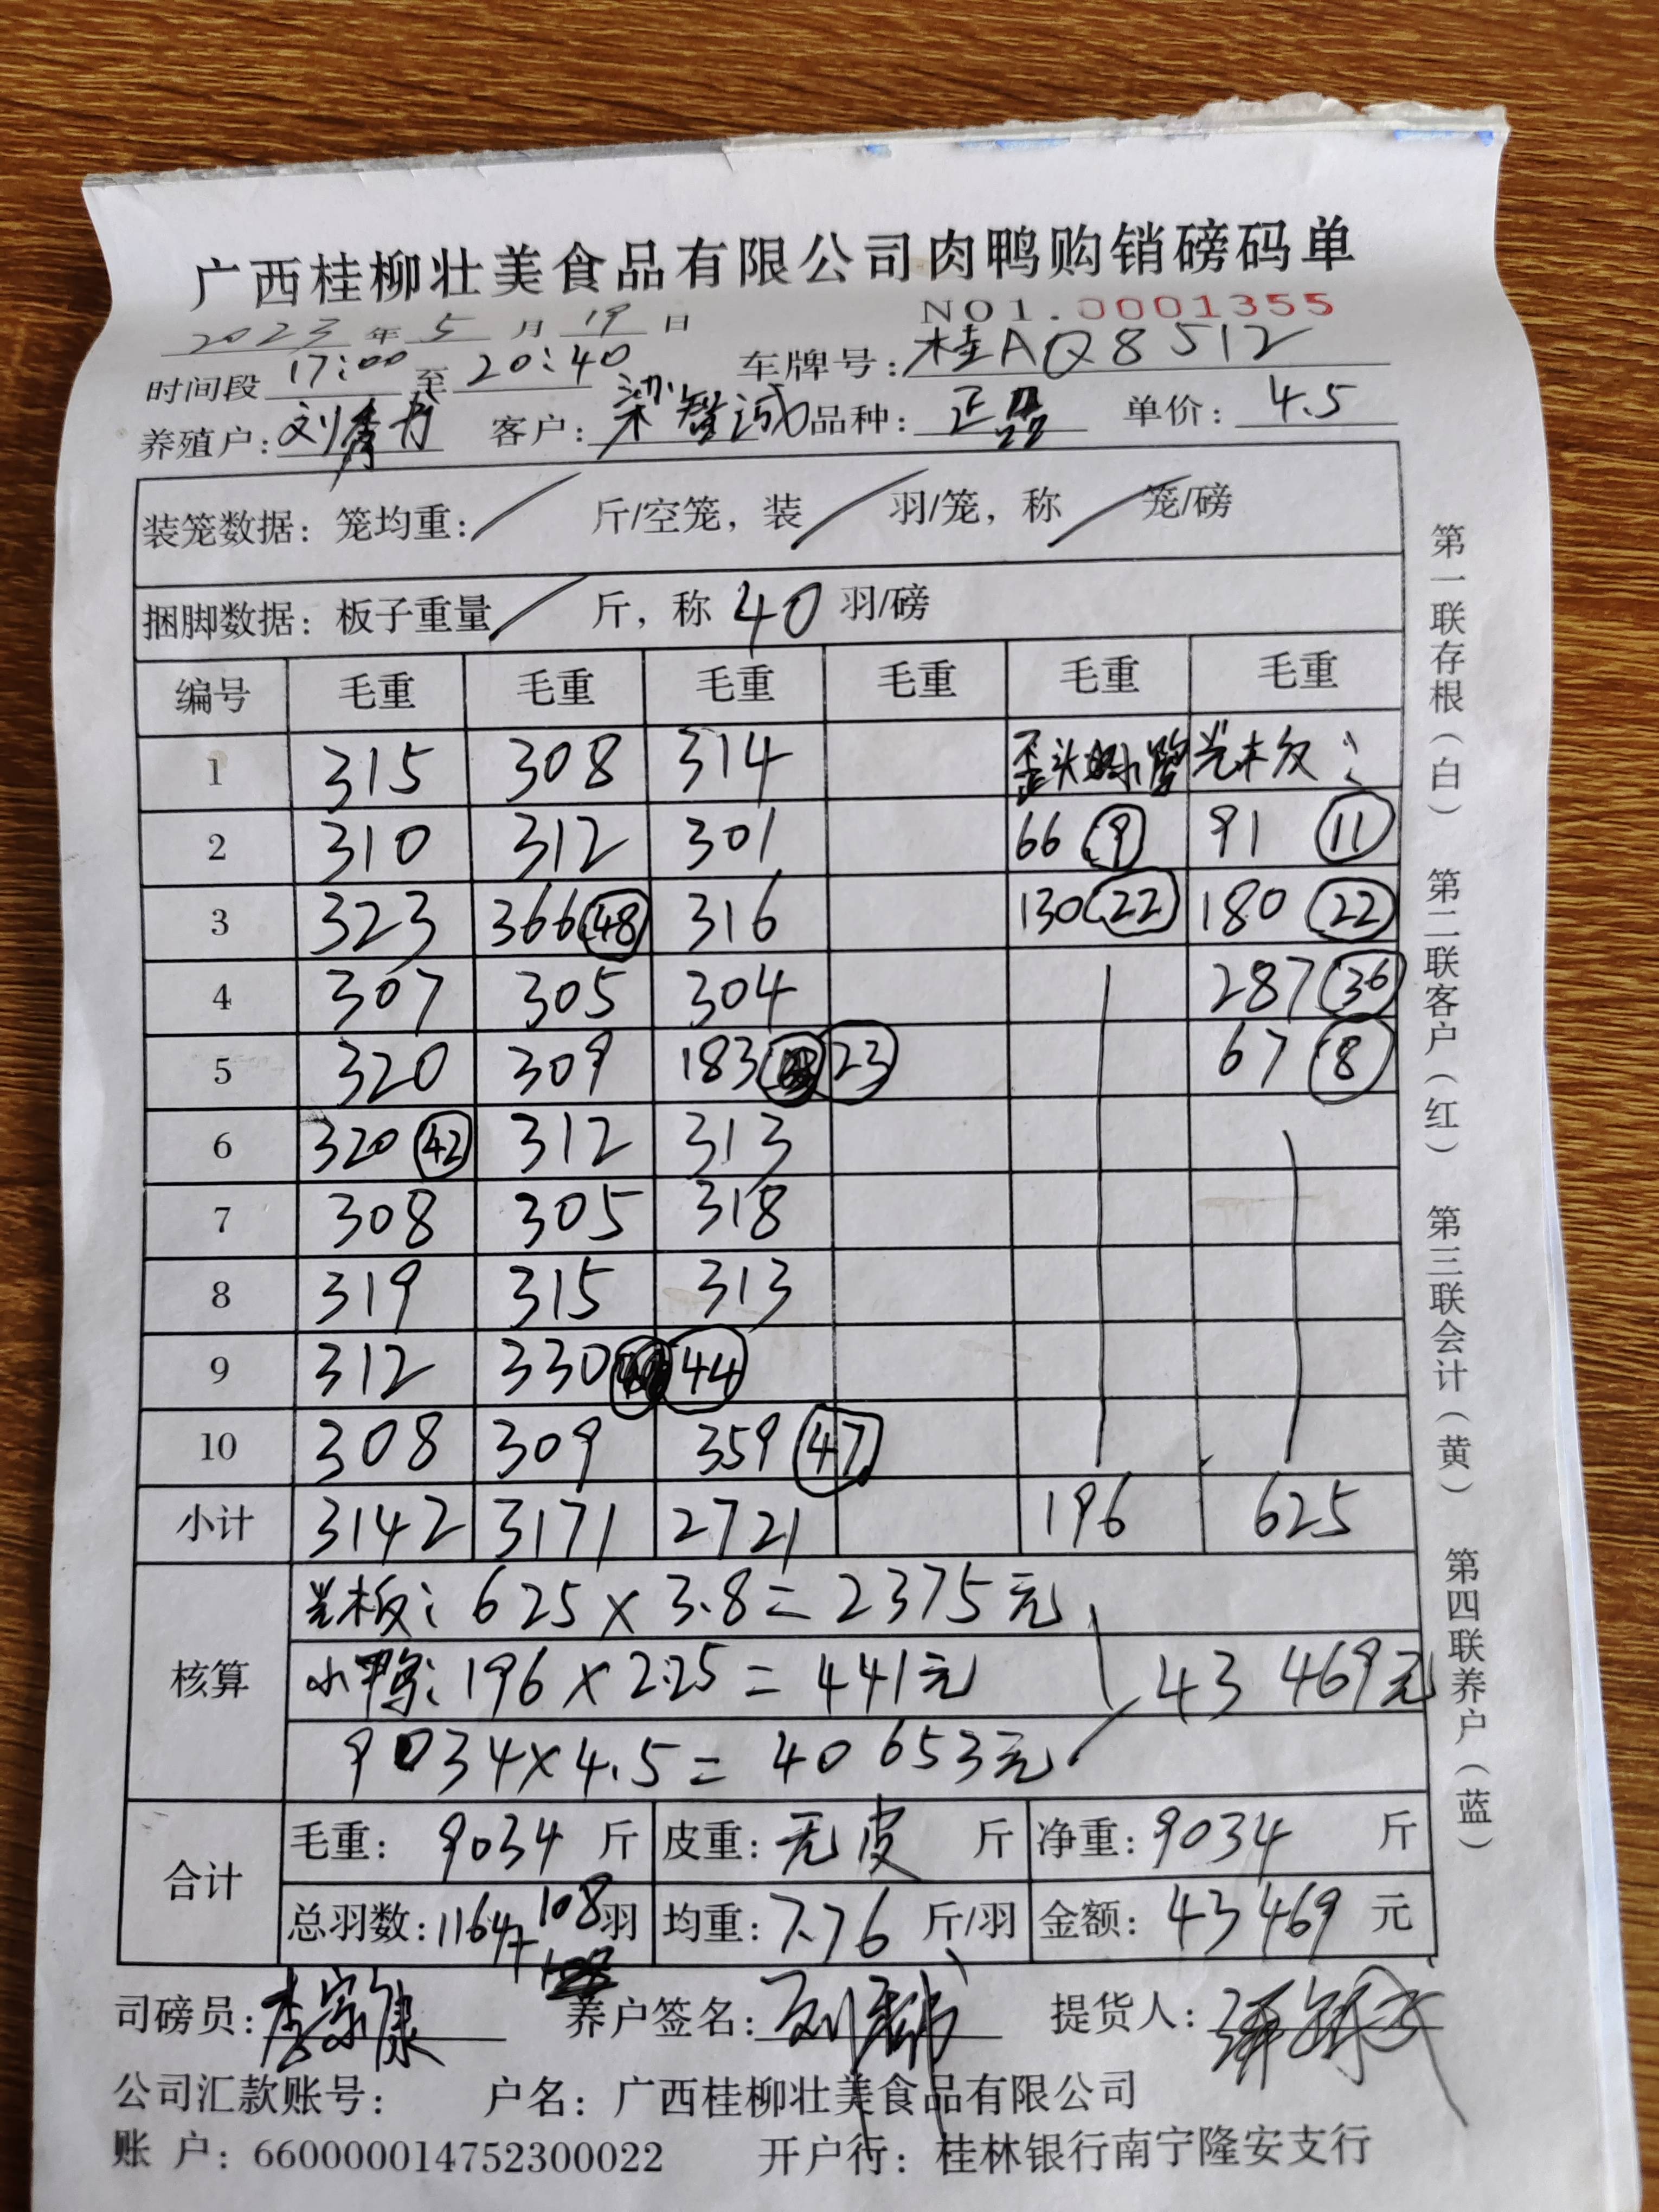 广西桂柳壮美食品有限公司肉鸭购销磅码单
NO1.0001355
2023 年 5 月 19 日
时间段 17:00 至 20:40 车牌号: 桂AQ8512
养殖户: 刘秀丹 客户: 梁智诚 品种: 正品 单价: 4.5
装笼数据: 笼均重: / 斤/空笼, 装 / 羽/笼, 称 / 笼/磅
捆脚数据: 板子重量 / 斤, 称 40 羽/磅
编号 毛重 毛重 毛重 毛重 毛重 毛重
1 315 308 314 歪头 小鸭 光板:
2 310 312 301 66 9 91 11
3 323 366 48 316 130 22 180 22
4 307 305 304 287 36
5 320 309 183 23 67 8
6 320 42 312 313
7 308 305 318
8 319 315 313
9 312 330 44
10 308 309 359 47
小计 3142 3171 2721 196 625
核算
光板: 625 × 3.8 = 2375元
小鸭: 196 × 2.25 = 441元 43469元
9034×4.5 = 40653元
合计
毛重: 9034 斤 皮重: 无皮 斤 净重: 9034 斤
总羽数: 1164+108 羽 均重: 7.76 斤/羽 金额: 43469 元
司磅员: 李宗康 养户签名: 提货人:
公司汇款账号: 户名: 广西桂柳壮美食品有限公司
账 户: 660000014752300022 开户行: 桂林银行南宁隆安支行
第一联存根(白) 第二联客户(红) 第三联会计(黄) 第四联养户(蓝)